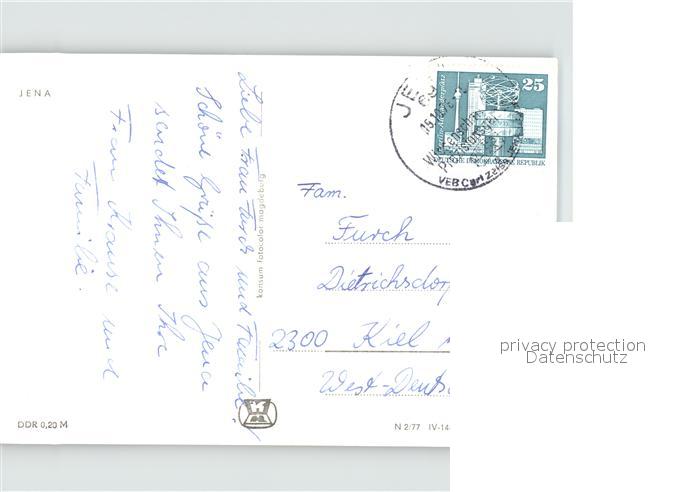 JENA
Liebe Frau Furch und Familie!
Schöne Grüße aus Jena
sendet Ihnen Ihre
Frau Krause und
Familie.
konsum fotocolor magdeburg
25
DEUTSCHE DEMOKRATISCHE REPUBLIK
VEB Carl Zeiss
Fam.
Furch
Dietrichsdorf
2300 Kiel
West-Deuts
DDR 0,20 M
N 2/77 IV-14
privacy protection
Datenschutz